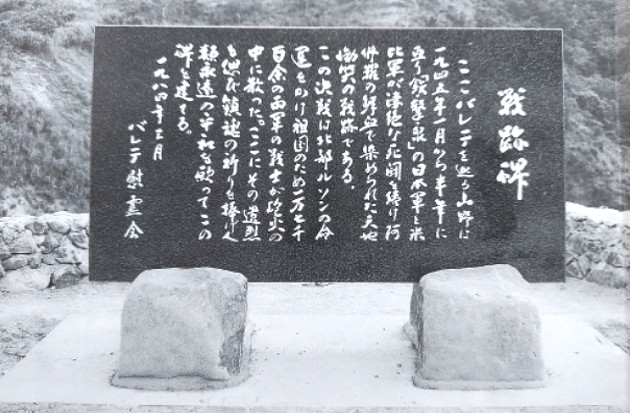 戦跡碑
ここバレテを巡る山野は
一九四五年一月から半年に
亘り「鉄撃泉」の日本軍と米
比軍が凄絶な死闘を続け阿
修羅の鮮血で染められた天地
慟哭の戦跡である。
この決戦は北部ルソンの命
運をかけ祖国のため万七千
百余の両軍の戦士が砲火の
中に散った。ここにその遺烈
を偲び鎮魂の祈りを捧げ人
類永遠の平和を願ってこの
碑を建てる。
一九八四年月
バレテ慰霊会